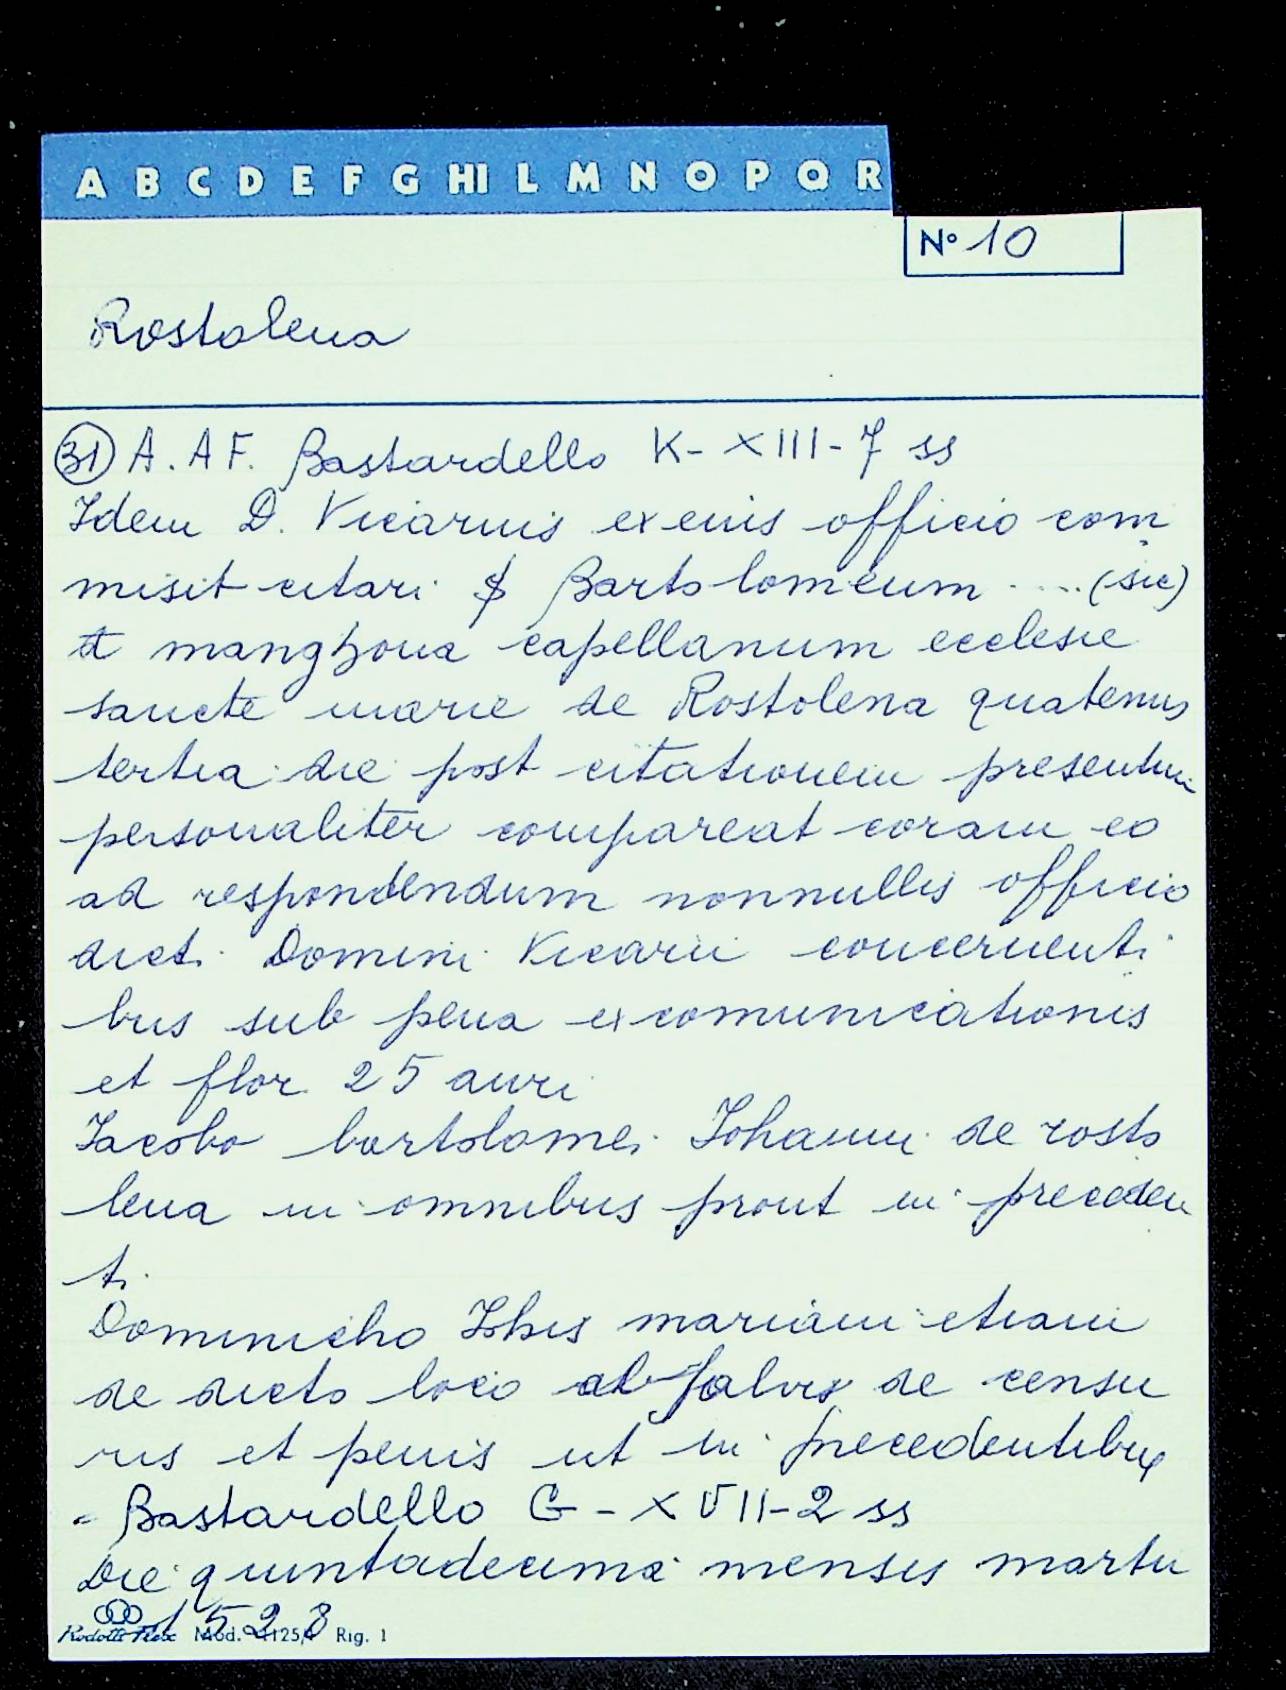 A B C D E F G HI L M N O P Q R
N° 10
Rostolena
31 A. A F. Bastardello K - XIII - 7 ss
Idem D. Vicarius ex eius officio com
misit citari Bartolomeum .... (sic)
manghona capellanum ecclesie
sancte marie de Rostolena quatenus
tertia die post citationem presentem
personaliter compareat coram eo
ad respondendum nonnullis officio
dicti Domini Vicarii concernenti
bus sub pena excomunicationis
et flor 25 auri
Iacobo bartolomei Iohanni de rosto
lena in omnibus prout in preceden
ti.
Dominicho Iohis mariani etiam
de dicto loco ab de censu
ris et penis ut in precedentibus
- Bastardello G - XVII - 2 ss
Die quintadecima mensis martii
1528
Mod. 1125/ Rig. 1